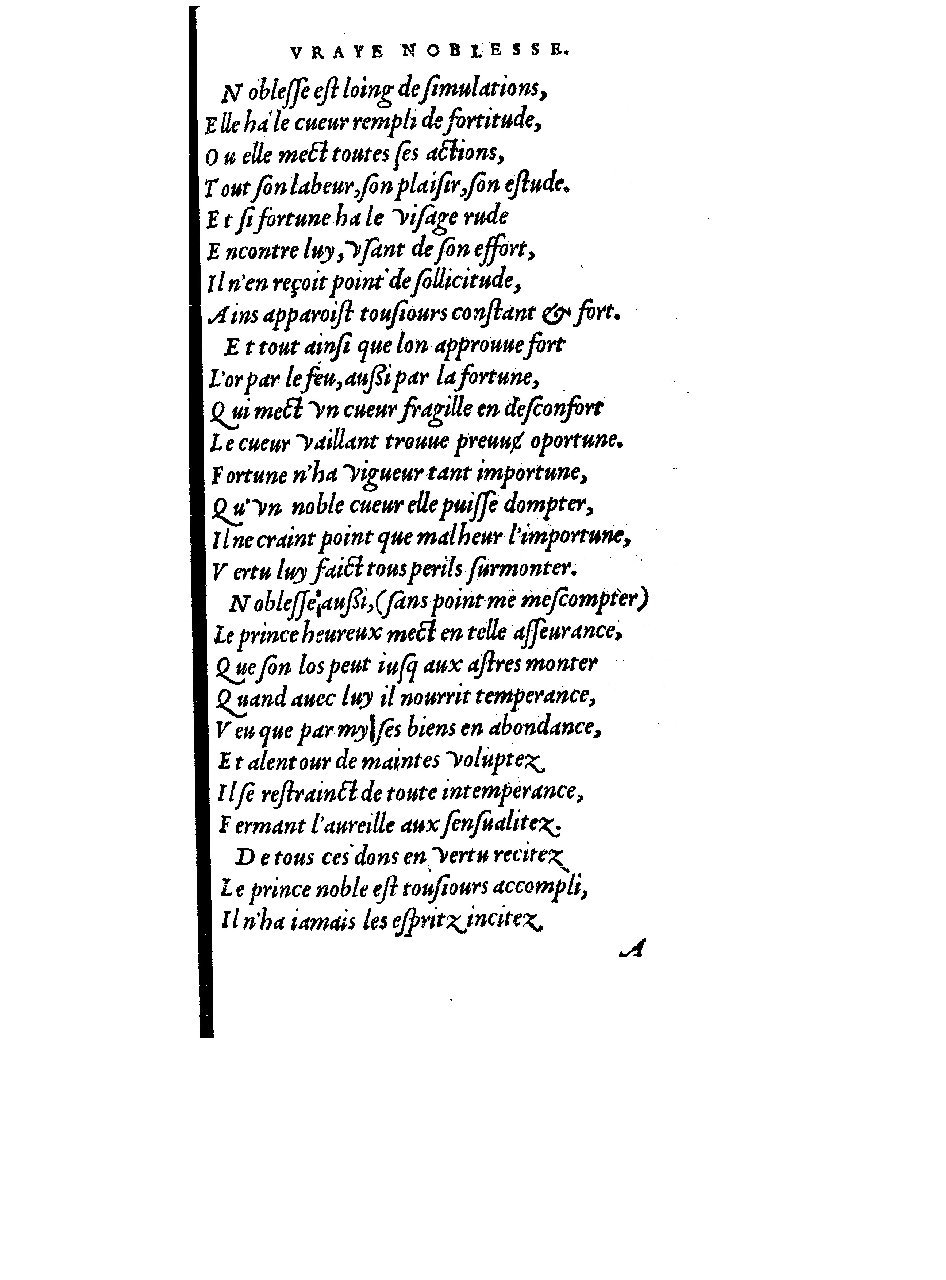 VRAYE NOBLESSE.
Noblesse est loing de simulations,
Elle ha le cueur rempli de fortitude,
Ou elle mect toutes ses actions,
Tout son labeur, son plaisir, son estude.
Et si fortune ha le visage rude
Encontre luy, vsant de son effort,
Il n'en reçoit point de sollicitude,
Ains apparoist tousiours constant & fort.
Et tout ainsi que lon approuue fort
L'or par le feu, aussi par la fortune,
Qui mect vn cueur fragille en desconfort
Le cueur vaillant trouue preuue oportune.
Fortune n'ha vigueur tant importune,
Qu'vn noble cueur elle puisse dompter,
Il ne craint point que malheur l'importune,
Vertu luy faict tous perils surmonter.
Noblesse aussi, (sans point me mescompter)
Le prince heureux mect en telle asseurance,
Que son los peut iusq aux astres monter
Quand auec luy il nourrit temperance,
Veu que par my ses biens en abondance,
Et alentour de maintes voluptez
Il se restrainct de toute intemperance,
Fermant l'aureille aux sensualitez.
De tous ces dons en vertu recitez
Le prince noble est tousiours accompli,
Il n'ha iamais les espritz incitez
A